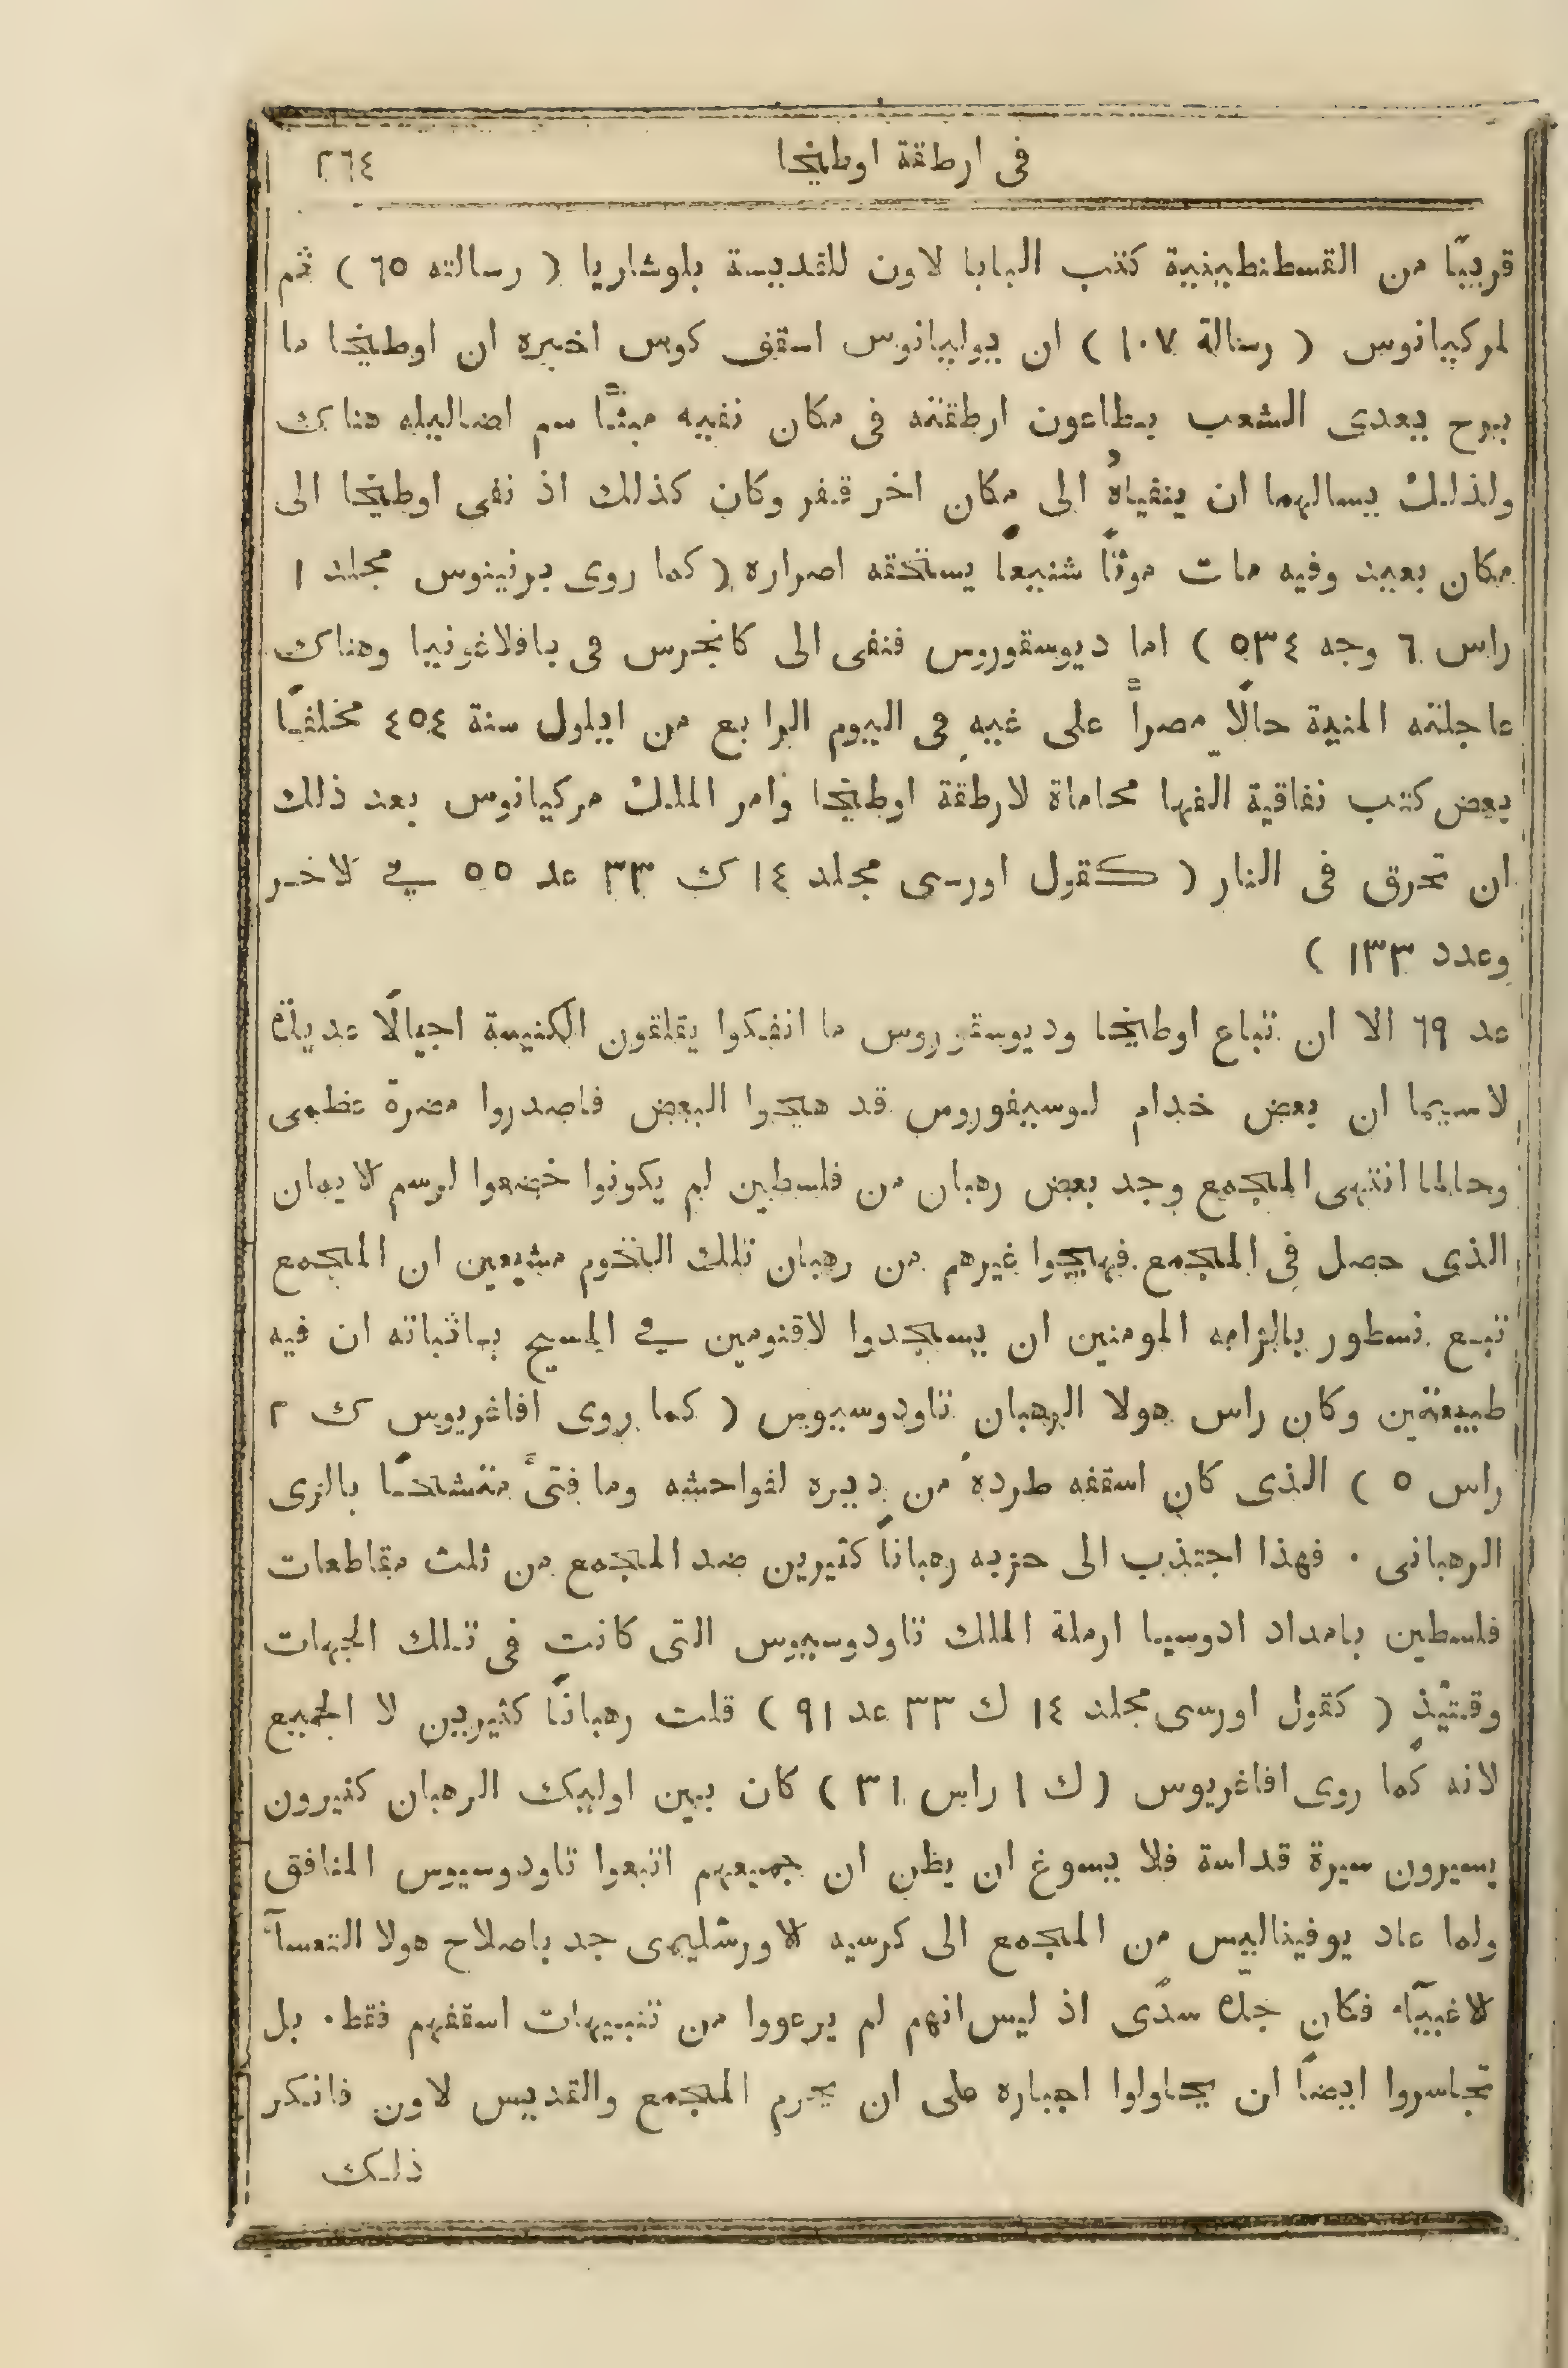 فى ارطقة اوطيخا
٢٦٤
قريبًا من القسطنطينية كتب البابا لاون للقديسة بلوشاريا ( رسالته ٦٥ ) ثم
لمركيانوس ( رسالة ١٠٧ ) ان يوليانوس اسقف كوس اخبره ان اوطيخا ما
برح يعدى الشعب بطاعون ارطقته فى مكان نفيه مبثًّا سم اضاليله هناك
ولذلك يسالهما ان ينفياهُ الى مكان اخر قفر وكان كذلك اذ نفى اوطيخا الى
مكان بعيد وفيه مات موتًا شنيعًا يستحقه اصراره ( كما روى برنينوس مجلد ١
راس ٦ وجه ٥٣٤ ) اما ديوسقوروس فنفى الى كانجرس فى بافلاغونيا وهناك
عاجلته المنية حالًا مصراً على غيه فى اليوم الرابع من ايلول سنة ٤٥٤ مخلفًا
بعض كتب نفاقية الفها محاماة لارطقة اوطيخا وامر الملك مركيانوس بعد ذلك
ان تحرق فى النار ( كقول اورسى مجلد ١٤ ك ٣٣ عد ٥٥ فى لاخر
وعدد ١٣٣ )
عد ٦٩ الا ان تباع اوطيخا وديوسقوروس ما انفكوا يقلقون الكنيسة اجيالًا عديدة
لاسيما ان بعض خدام لوسيفوروس قد هيجوا البعض فاصدروا مضرة عظمى
وحالما انتهى المجمع وجد بعض رهبان من فلسطين لم يكونوا خضعوا لرسم لايمان
الذى حصل فى المجمع فهيجوا غيرهم من رهبان تلك التخوم مشيعين ان المجمع
تبع نسطور بالزامه المومنين ان يسجدوا لاقنومين فى المسيح باثباته ان فيه
طبيعتين وكان راس هولا الرهبان تاودوسيوس ( كما روى افاغريوس ك ٢
راس ٥ ) الذى كان اسقفه طرده من ديره لفواحشه وما فتئ متشحًا بالزى
الرهبانى . فهذا اجتذب الى حزبه رهبانًا كثيرين ضد المجمع من ثلث مقاطعات
فلسطين بامداد ادوسيا ارملة الملك تاودوسيوس التى كانت فى تلك الجهات
وقتيذ ( كقول اورسى مجلد ١٤ ك ٣٣ عد ٩١ ) قلت رهبانًا كثيرين لا الجميع
لانه كما روى افاغريوس ( ك ١ راس ٣١ ) كان بين اوليك الرهبان كثيرون
يسيرون سيرة قداسة فلا يسوغ ان يظن ان جميعهم اتبعوا تاودوسيوس المنافق
ولما عاد يوفيناليس من المجمع الى كرسيه لاورشليمى جد باصلاح هولا التعسآء
لاغبيآء فكان جده سدًى اذ ليس انهم لم يرعووا من تنبيهات اسقفهم فقط . بل
تجاسروا ايضًا ان يحاولوا اجباره على ان يحرم المجمع والقديس لاون فانكر
ذلك